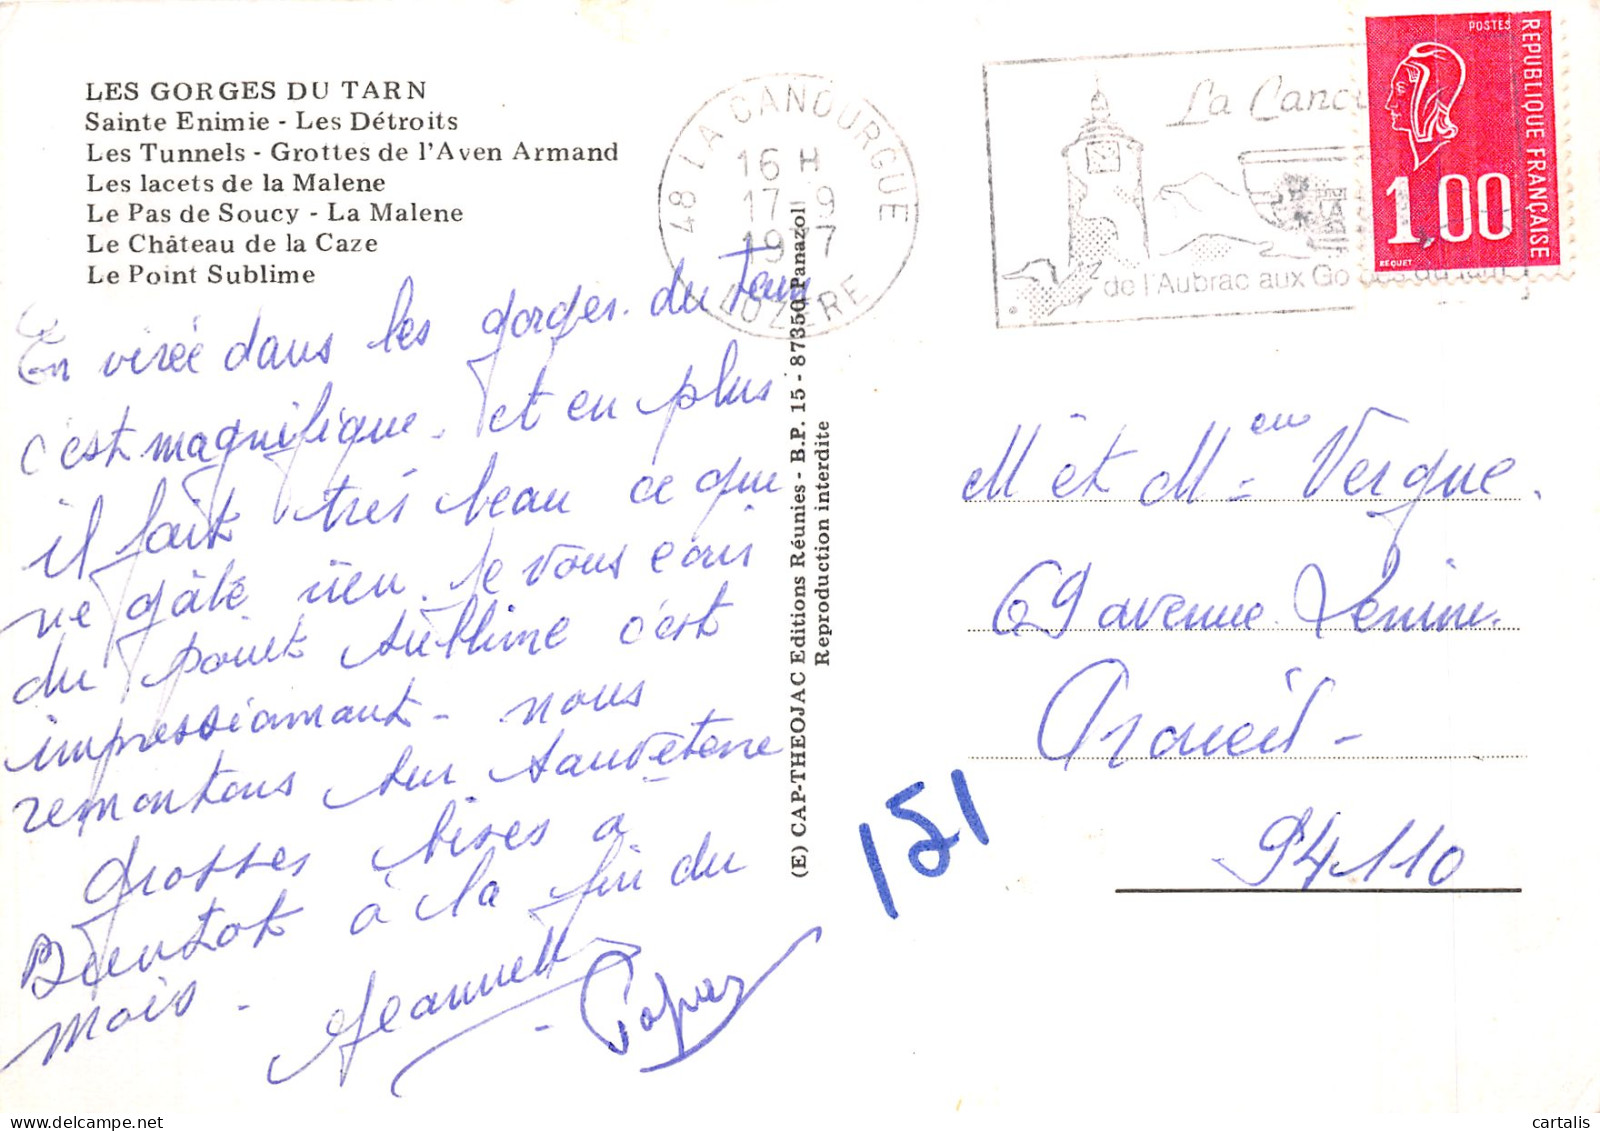 LES GORGES DU TARN
Sainte Enimie - Les Détroits
Les Tunnels - Grottes de l'Aven Armand
Les lacets de la Malene
Le Pas de Soucy - La Malene
Le Château de la Caze
Le Point Sublime
En virée dans les gorges du Tarn
c'est magnifique. et en plus
il fait très beau ce que
ne gâte rien. Je vous ecris
du point sublime c'est
impressionnant - nous
remontons sur Sauveterre
Grosses bises a
Bientot à la fin du
mois -
Jeannette
(E) CAP-THEOJAC Editions Réunies - B.P. 15 - 87350 Panazol
Reproduction interdite
48 LA CANOURGUE
16 H
17 9
19 7
LOZERE
La Canou
de l'Aubrac aux Go
POSTES
REPUBLIQUE FRANCAISE
1,00
BEQUET
M et M em Vergue.
69 avenue Lenine.
Arcueil -
94110
151
cartalis